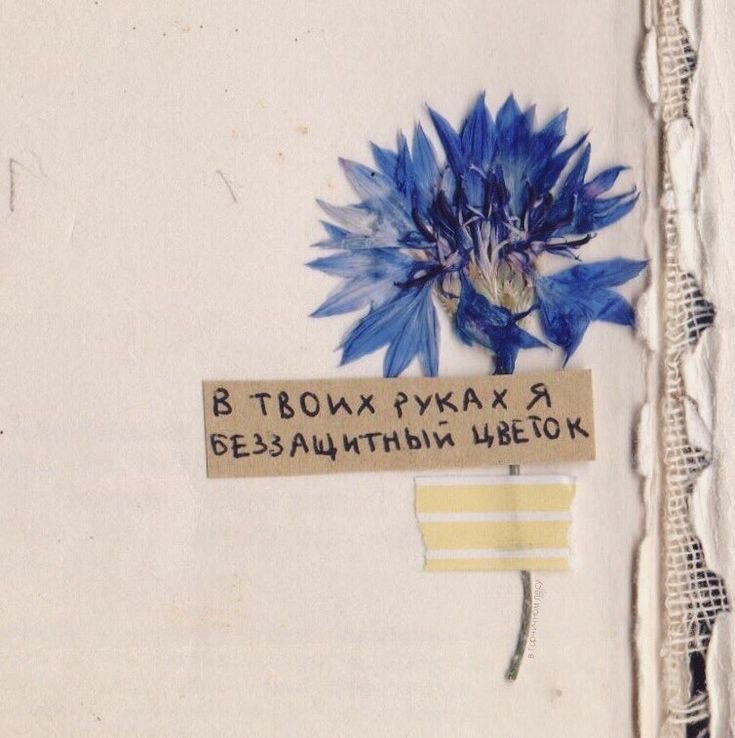 В ТВОИХ РУКАХ Я
БЕЗЗАЩИТНЫЙ ЦВЕТОК
в горчичном лесу